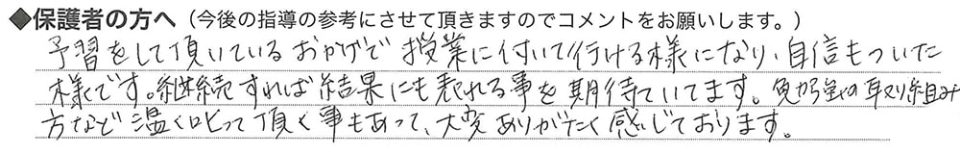 ◆保護者の方へ（今後の指導の参考にさせて頂きますのでコメントをお願いします。）
予習をして頂いているおかげで授業に付いて行ける様になり、自信もついた
様です。継続すれば結果にも表れる事を期待ていてます。勉強の取り組み
方など温く叱って頂く事もあって、大変ありがたく感じております。